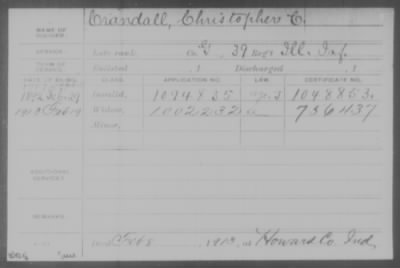 NAME OF SOLDIER: Crandall, Christopher C.
SERVICE: Late rank, Co. G, 39 Reg't Ill. Inf.
TERM OF SERVICE: Enlisted , 1 Discharged , 1
DATE OF FILING. CLASS. APPLICATION NO. LAW. CERTIFICATE NO.
Invalid, 1094835 1048863.
1913 Feb 19 Widow, 1002232 736437
Minor,
ADDITIONAL SERVICES:
REMARKS:
Died Feb 8, 1913, at Howard Co. Ind.